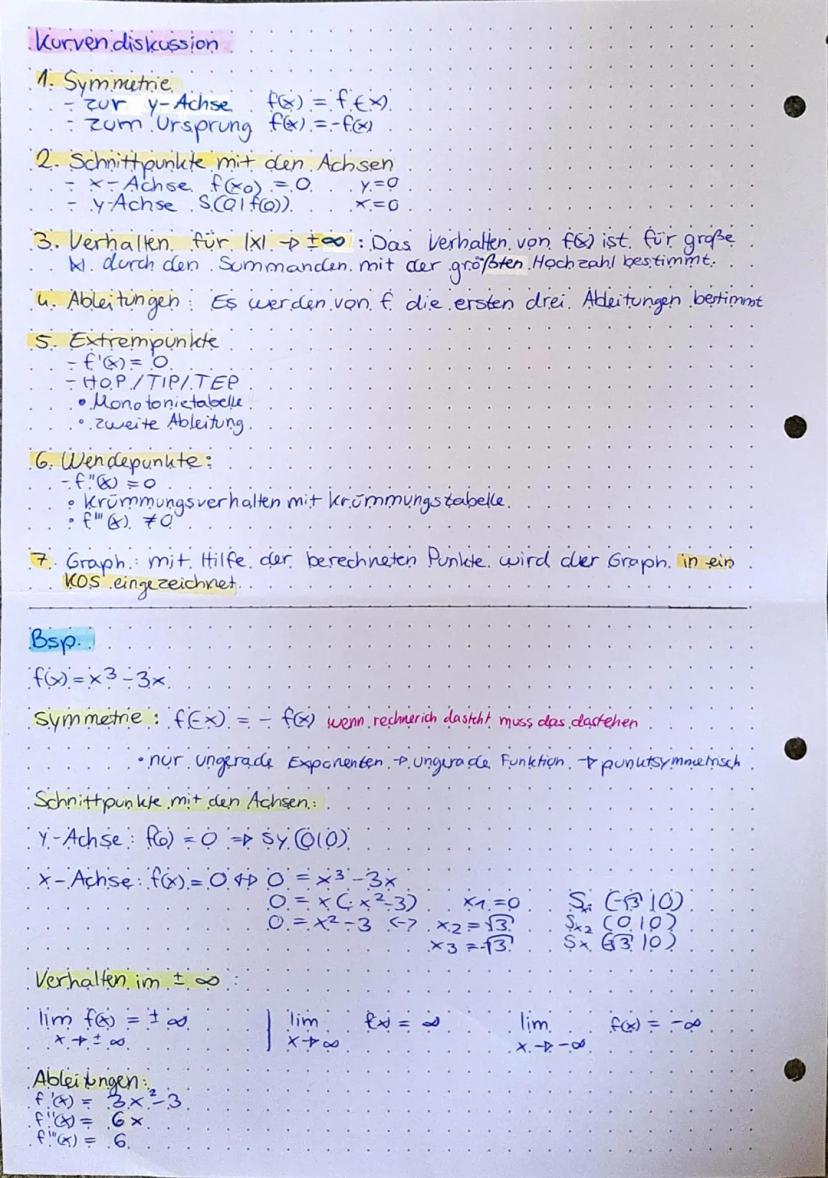 Kurvendiskussion
1. Symmetrie
- zur y-Achse f(x) = f(-x)
- zum Ursprung f(x) = -f(x)
2. Schnittpunkte mit den Achsen
- x-Achse f(x0) = 0 y=0
- y-Achse S(0|f(0)) x=0
3. Verhalten für |x| → ±∞ : Das Verhalten von f(x) ist für große
|x| durch den Summanden mit der größten Hochzahl bestimmt.
4. Ableitungen: Es werden von f die ersten drei Ableitungen bestimmt
5. Extrempunkte
- f'(x) = 0
- HOP/TIP/TEP
• Monotonietabelle
• zweite Ableitung
6. Wendepunkte:
- f''(x) = 0
• Krümmungsverhalten mit Krümmungstabelle
• f'''(x) ≠ 0
7. Graph: mit Hilfe der berechneten Punkte wird der Graph in ein
KOS eingezeichnet
Bsp.:
f(x) = x³ - 3x
Symmetrie: f(-x) = - f(x) wenn rechnerich dasteht muss das dastehen
• nur ungerade Exponenten → ungerade Funktion → punktsymmetrisch
Schnittpunkte mit den Achsen:
Y-Achse: f(0) = 0 ⇒ Sy (0|0)
X-Achse: f(x) = 0 ↔ 0 = x³ - 3x
0 = x(x²-3) x1 = 0 Sx (-√3|0)
0 = x² - 3 <-> x2 = √3 Sx2 (0|0)
x3 = -√3 Sx (√3|0)
Verhalten im ± ∞:
lim f(x) = ± ∞ | lim f(x) = ∞ lim f(x) = -∞
x → ± ∞ x → ∞ x → -∞
Ableitungen:
f'(x) = 3x² - 3
f''(x) = 6x
f'''(x) = 6